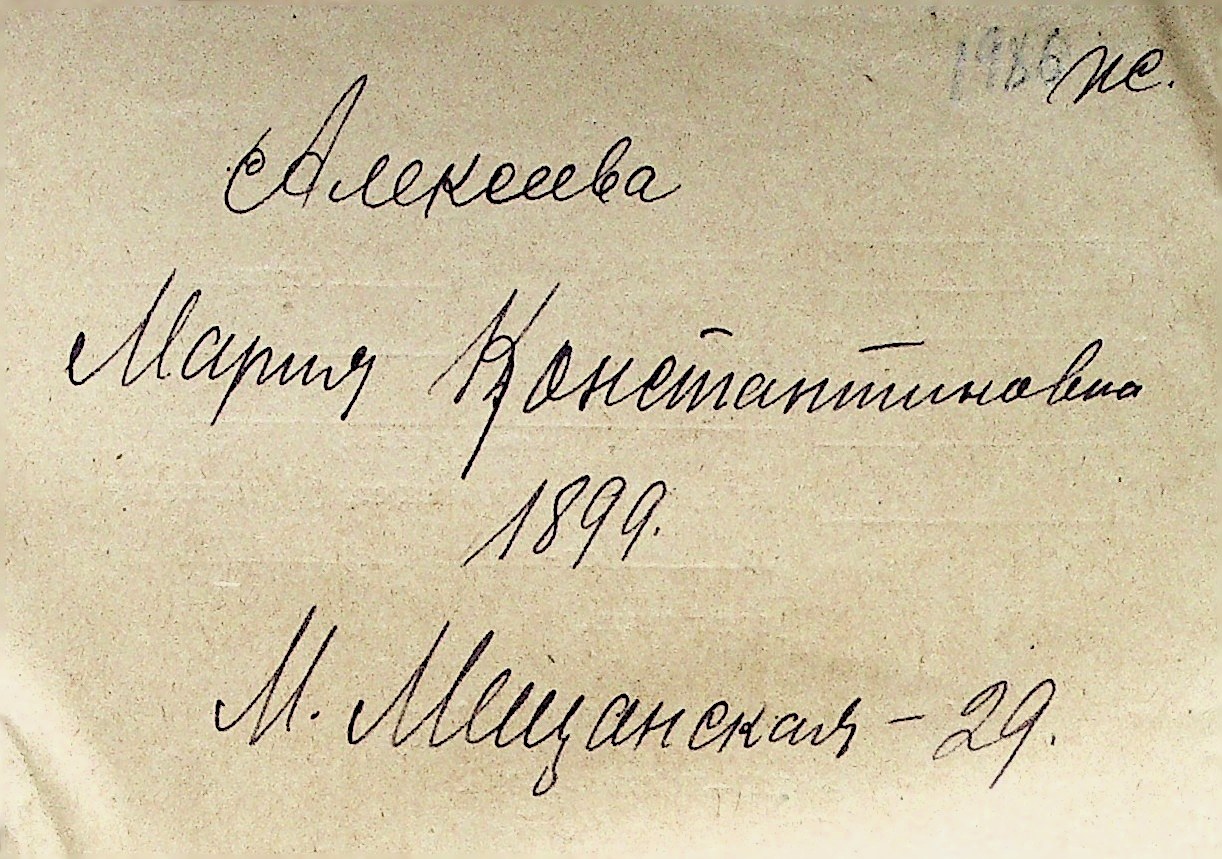 1986 пс.
Алексеева
Мария Константиновна
1899.
М. Мещанская - 29.